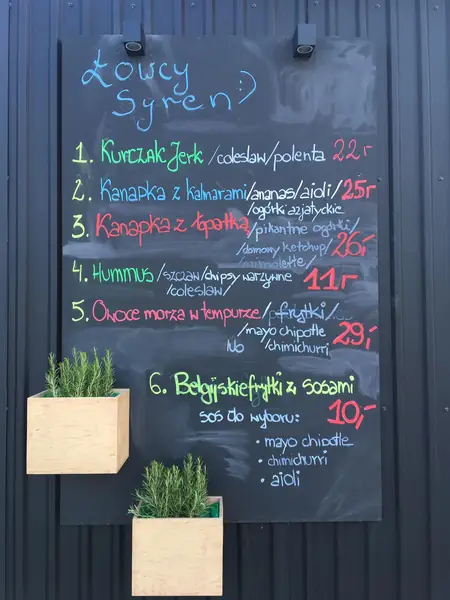 Łowcy
Syren :)
1. Kurczak Jerk /coleslaw/polenta 22,-
2. Kanapka z kalmarami/ananas/aioli/ 25,-
/ogórki azjatyckie
3. Kanapka z łopatką/pikantne ogórki/
domowy ketchup/ 26,-
4. Hummus /szczaw/chipsy warzywne 11,-
/coleslaw/
5. Owoce morza w tempurze/frytki/
/mayo chipotle 29,-
/chimichurri
6. Belgijskie frytki z sosami
sos do wyboru: 10,-
• mayo chipotle
• chimichurri
• aioli